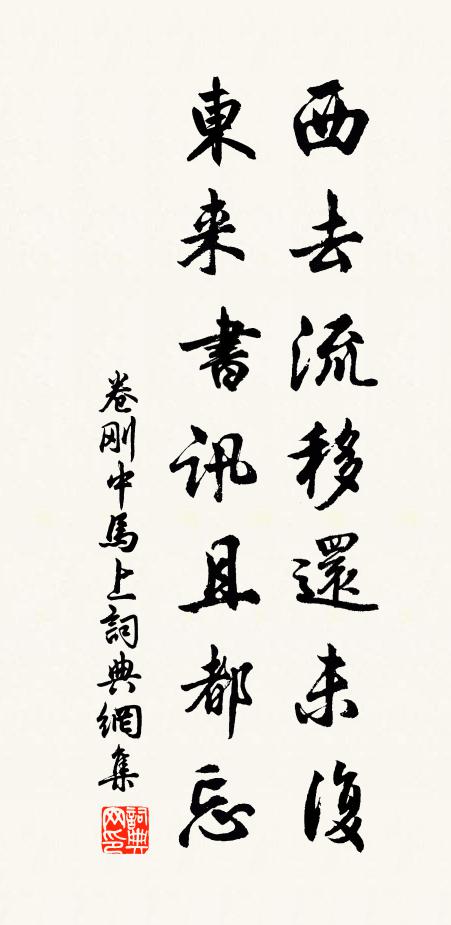 西去流移還未復
東来書訊且都忘
卷剛中馬上詞典網集
詞典网印